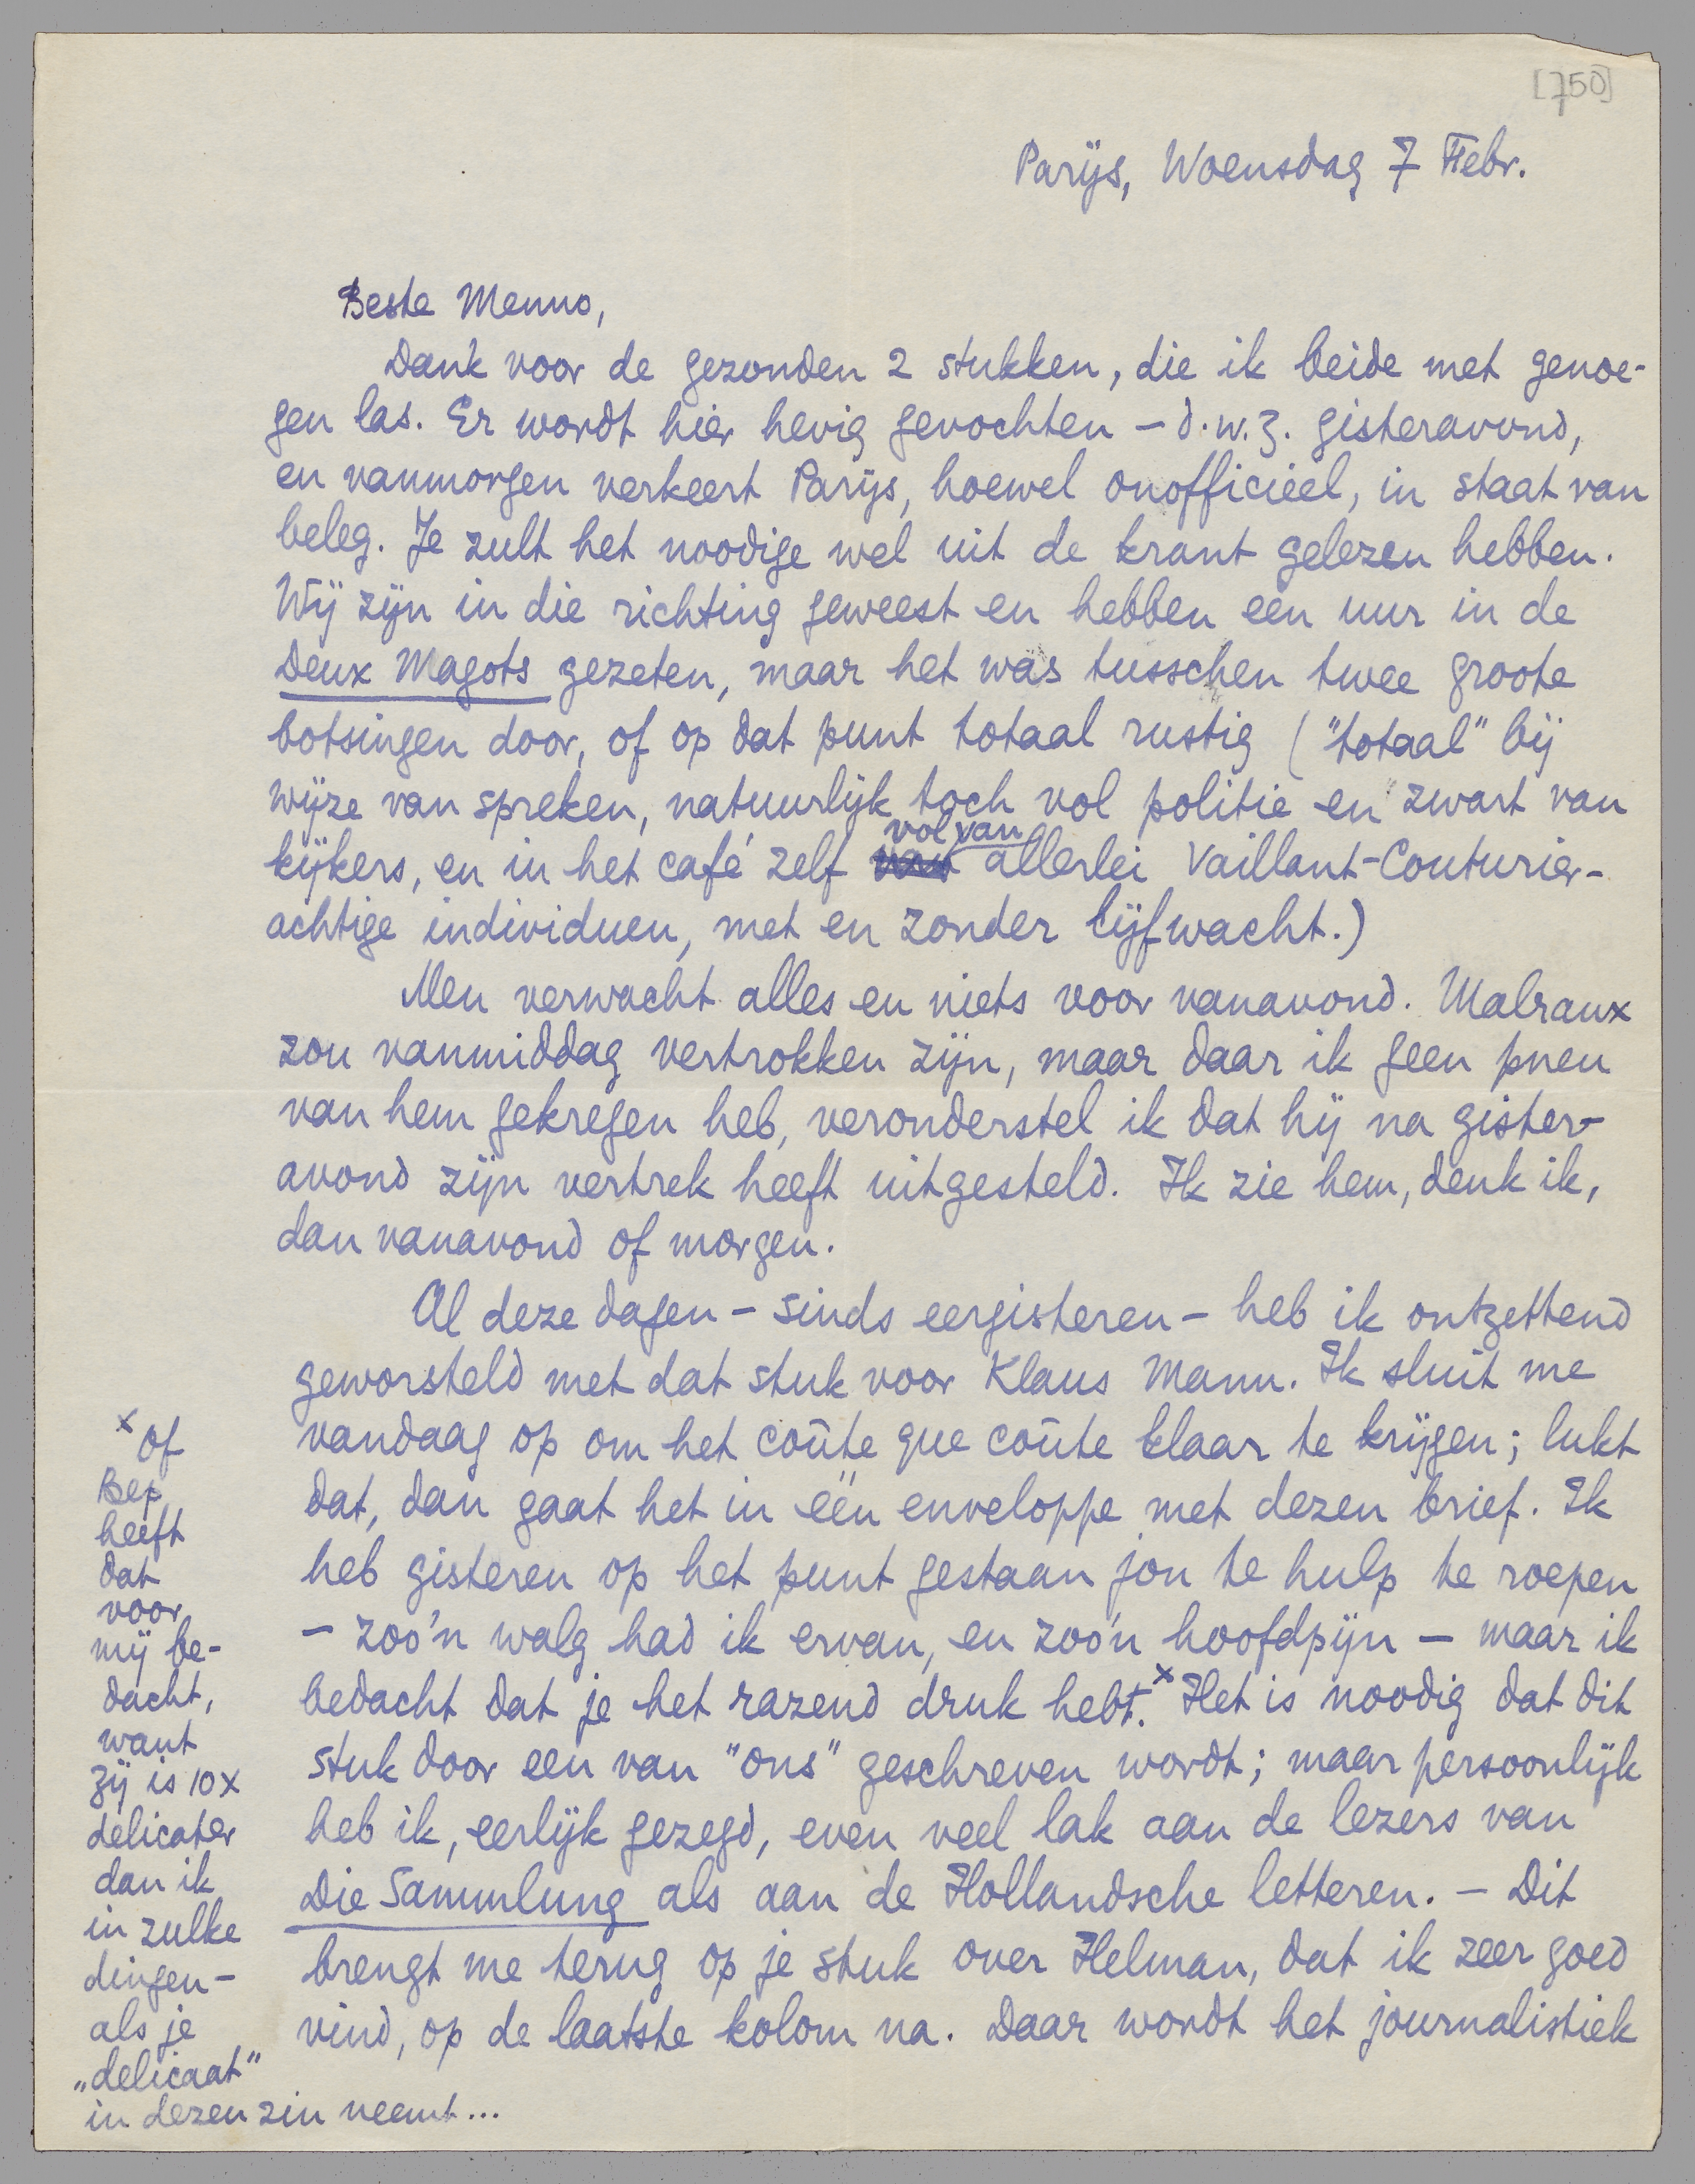 [750]
Parijs, Woensdag 7 Febr.
Beste Menno,
Dank voor de gezonden 2 stukken, die ik beide met genoe-
gen las. Er wordt hier hevig gevochten – d.w.z. gisteravond,
en vanmorgen verkeert Parijs, hoewel onofficieel, in staat van
beleg. Je zult het noodige wel uit de krant gelezen hebben.
Wij zijn in die richting geweest en hebben een uur in de
Deux Magots gezeten, maar het was tusschen twee groote
botsingen door, of op dat punt totaal rustig ("totaal" bij
wijze van spreken, natuurlijk toch vol politie en zwart van
kijkers, en in het café zelf vol van allerlei Vaillant-Couturier-
achtige individuen, met en zonder lijfwacht.)
Men verwacht alles en niets voor vanavond. Malraux
zou vanmiddag vertrokken zijn, maar daar ik geen pneu
van hem gekregen heb, veronderstel ik dat hij na gister-
avond zijn vertrek heeft uitgesteld. Ik zie hem, denk ik,
dan vanavond of morgen.
Al deze dagen – sinds eergisteren – heb ik ontzettend
geworsteld met dat stuk voor Klaus Mann. Ik sluit me
vandaag op om het coûte que coûte klaar te krijgen; lukt
dat, dan gaat het in één enveloppe met dezen brief. Ik
heb gisteren op het punt gestaan jou te hulp te roepen
– zoo'n walg had ik ervan, en zoo'n hoofdpijn – maar ik
bedacht dat je het razend druk hebt.x Het is noodig dat dit
stuk door een van "ons" geschreven wordt; maar persoonlijk
heb ik, eerlijk gezegd, even veel lak aan de lezers van
Die Sammlung als aan de Hollandsche letteren. – Dit
brengt me terug op je stuk over Helman, dat ik zeer goed
vind, op de laatste kolom na. Daar wordt het journalistiek
x of
Bep
heeft
dat
voor
mij be-
dacht,
want
zij is 10x
delicater
dan ik
in zulke
dingen –
als je
„delicaat"
in dezen zin neemt...